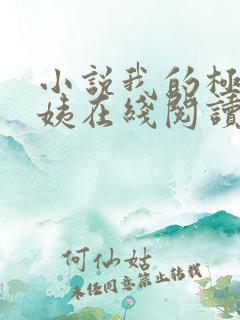 小說我的極
姨在綫閱讀
何仙姑
未經同意禁止轉載